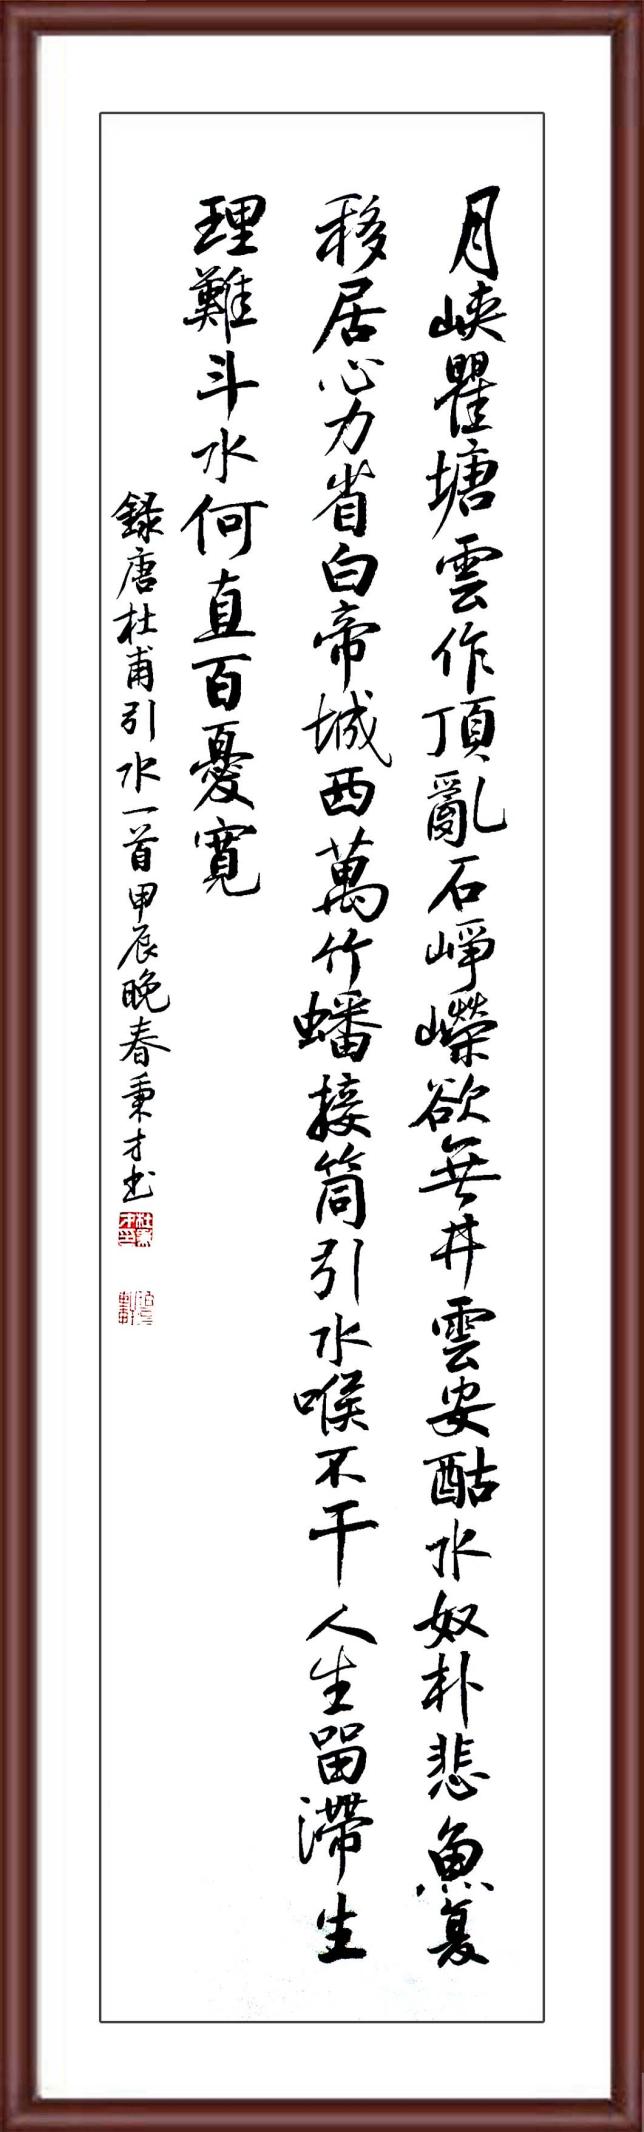 月峽瞿塘雲作頂亂石崢嶸欲無井雲安酤水奴朴悲魚复
移居心力省白帝城西萬竹蟠接筒引水喉不干人生留滯生
理難斗水何直百憂寬
錄唐杜甫引水一首甲辰晚春秉才书
杜秉才印